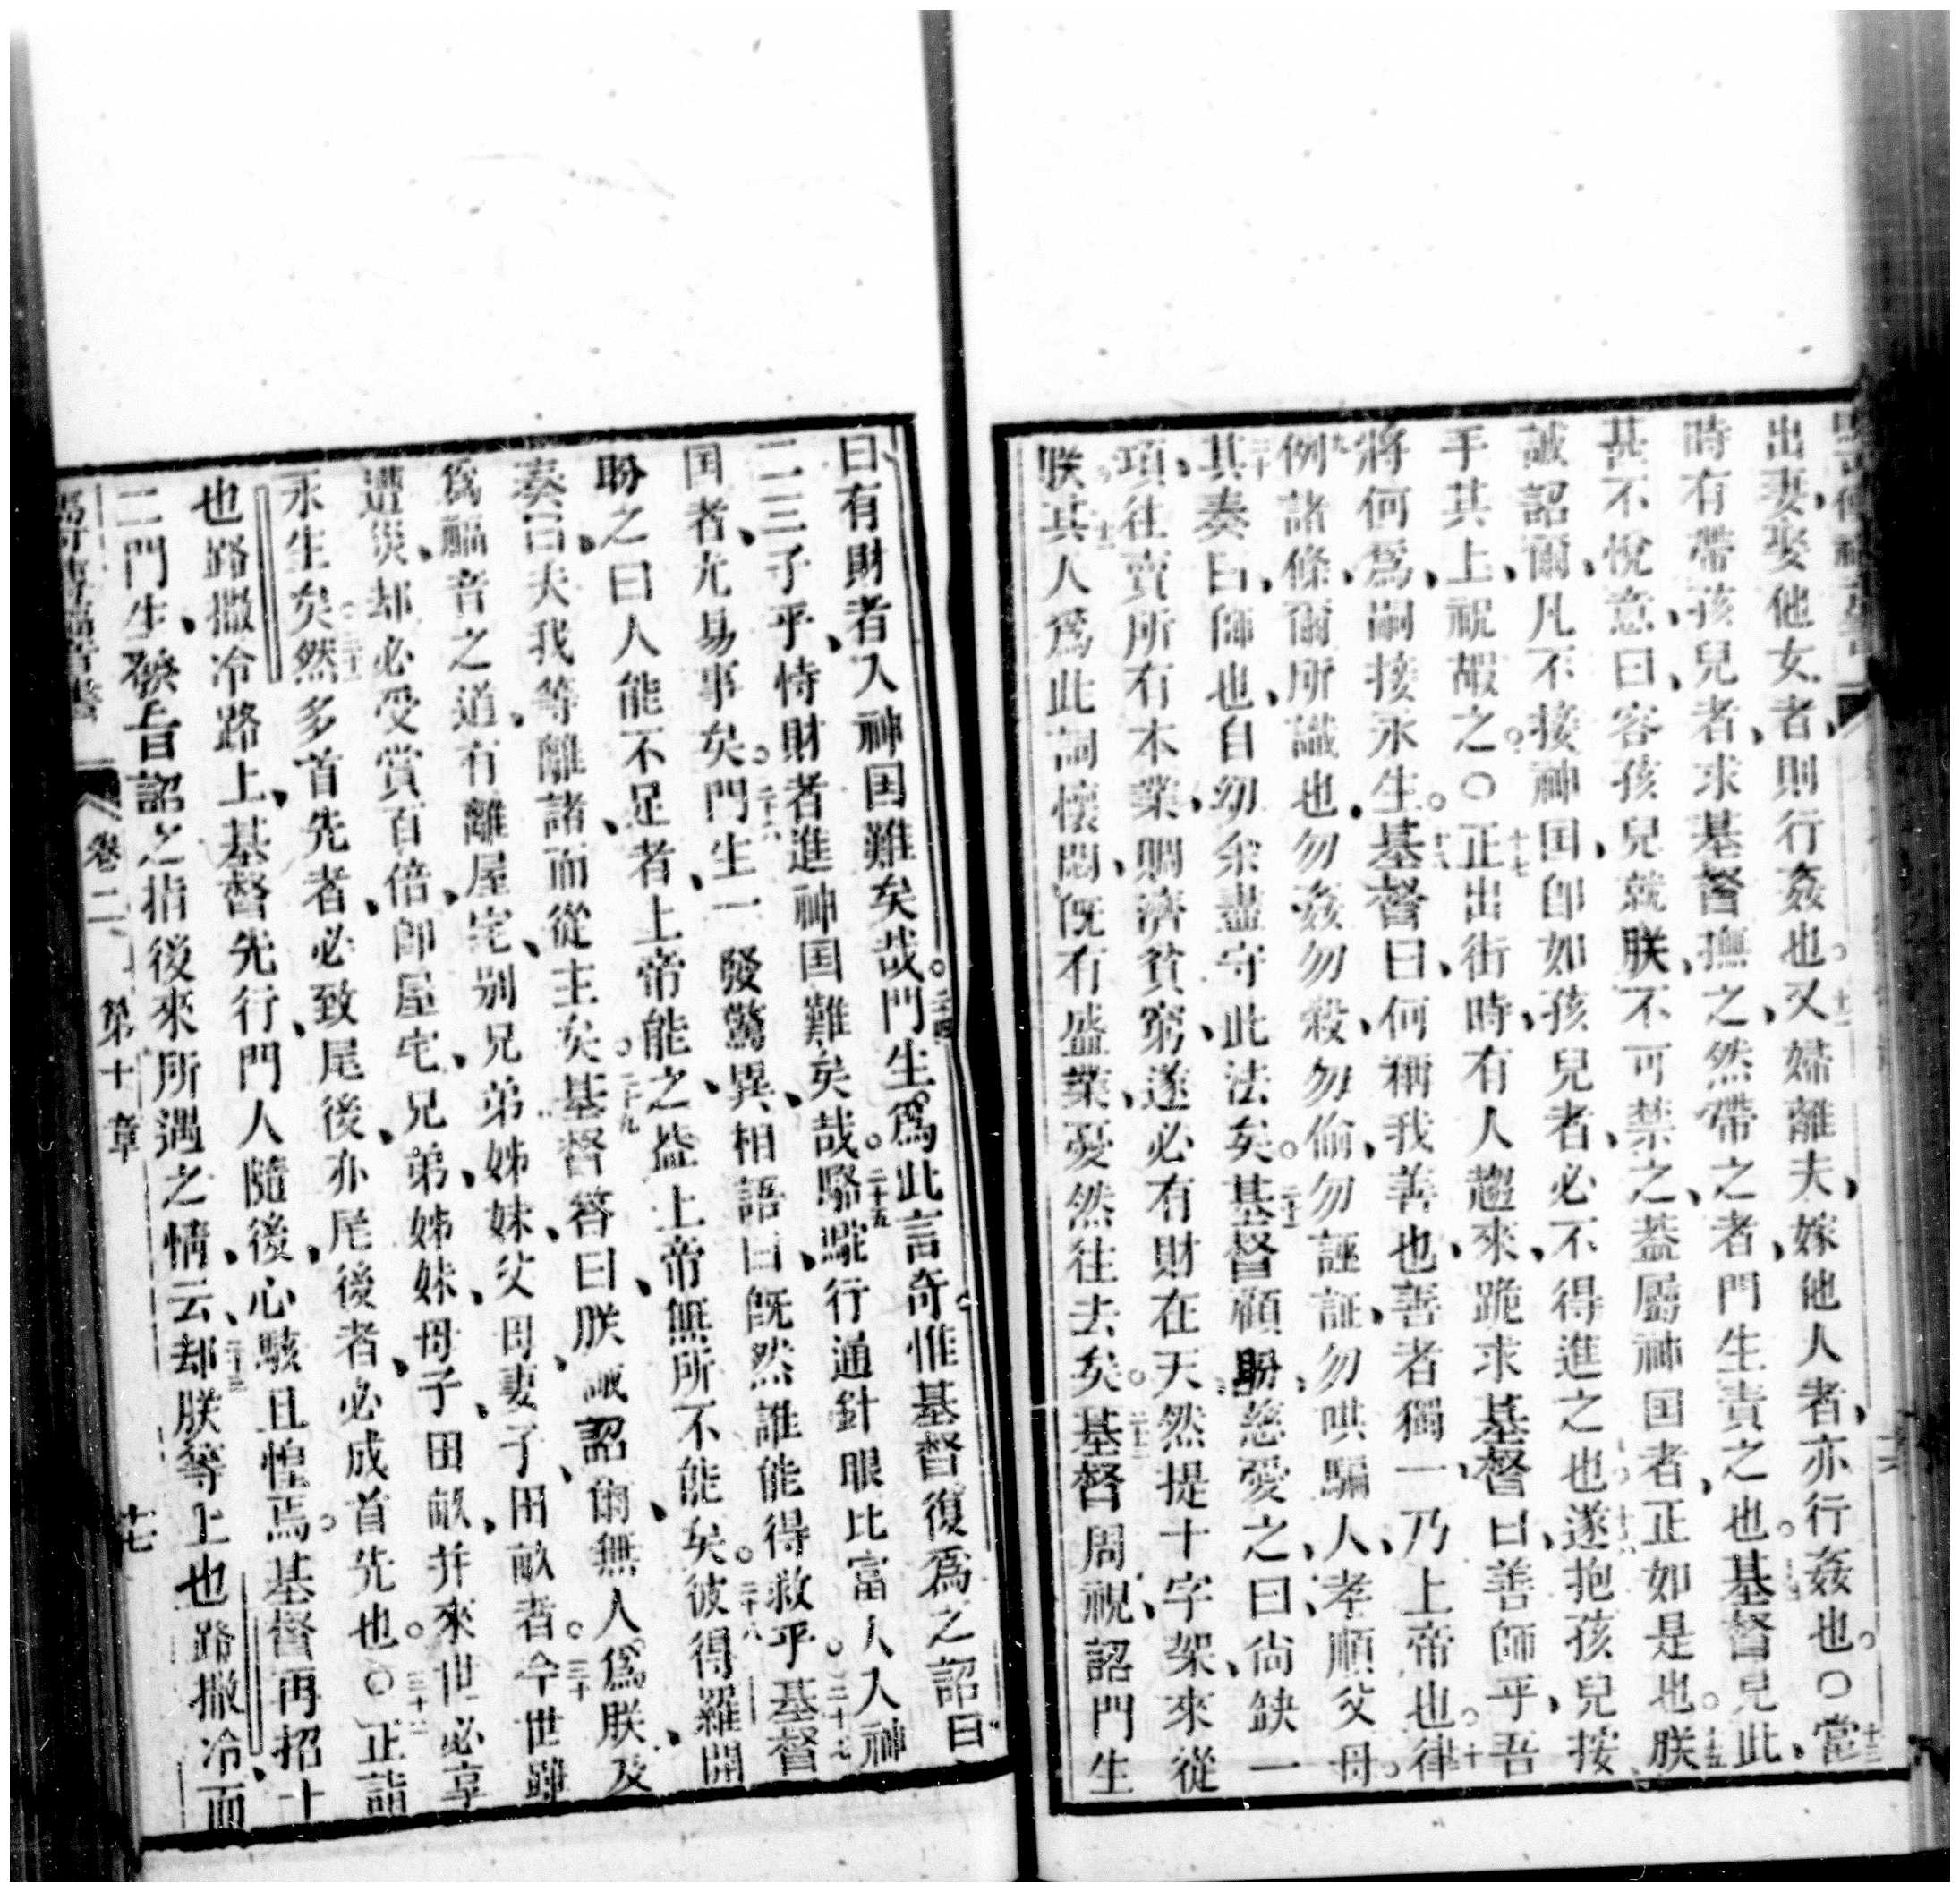 出妻、娶他女者、則行姦也。十二又婦離夫、嫁他人者、亦行姦也。〇十三當
時有帶孩兒者、求基督撫之、然帶之者、門生責之也。基督見此、
甚不悅意、曰、容孩兒就朕、不可禁之、葢屬神国者、正如是也。十五朕
誠詔爾、凡不接神国、卽如孩兒者、必不得進之也。十六遂抱孩兒、按
手其上、祝嘏之。〇十七正出街時、有人趨來、跪求基督曰、善師乎、吾
將何爲、嗣接永生。十八基督曰、何稱我善也、善者獨一、乃上帝也。十九律
例諸條、爾所識也、勿姦勿殺、勿偷勿誣証、勿哄騙人、孝順父母。
二十其奏曰、師也、自幼余盡守此法矣。二十一基督顧盼、慈愛之、曰、尙缺一
項、往賣所有本業、賙濟貧窮、遂必有財在天、然提十字架、來從
朕。二十二其人爲此詞懷悶、旣有盛業、憂然往去矣。二十三基督周視、詔門生
曰、有財者、入神国難矣哉。二十四門生爲此言奇、惟基督復爲之詔曰、
二三子乎、恃財者、進神国難矣哉。二十五駱駝行通針眼、比富人入神
国者、尤易事矣。二十六門生一發驚異、相語曰、旣然誰能得救乎。二十七基督
盼之曰、人能不足者、上帝能之、葢上帝無所不能矣。二十八彼得羅開
奏曰、夫我等離諸而從主矣。二十九基督答曰、朕誠詔爾、無人爲朕、及
爲福音之道、有離屋宅、别兄弟姊妹、父母妻子、田畝者。三十今世雖
遭災、却必受賞百倍、卽屋宅、兄弟、姊妹、母子、田畝、并來世必享
永生矣。三十一然多首先者、必致尾後、亦尾後者、必成首先也。〇三十二正詣
也路撒冷路上、基督先行、門人隨後、心駭且惶焉。基督再招十
二門生、發言詔之、指後來所遇之情、云、三十三却朕等上也路撒冷、而
卷二 第十章 十七